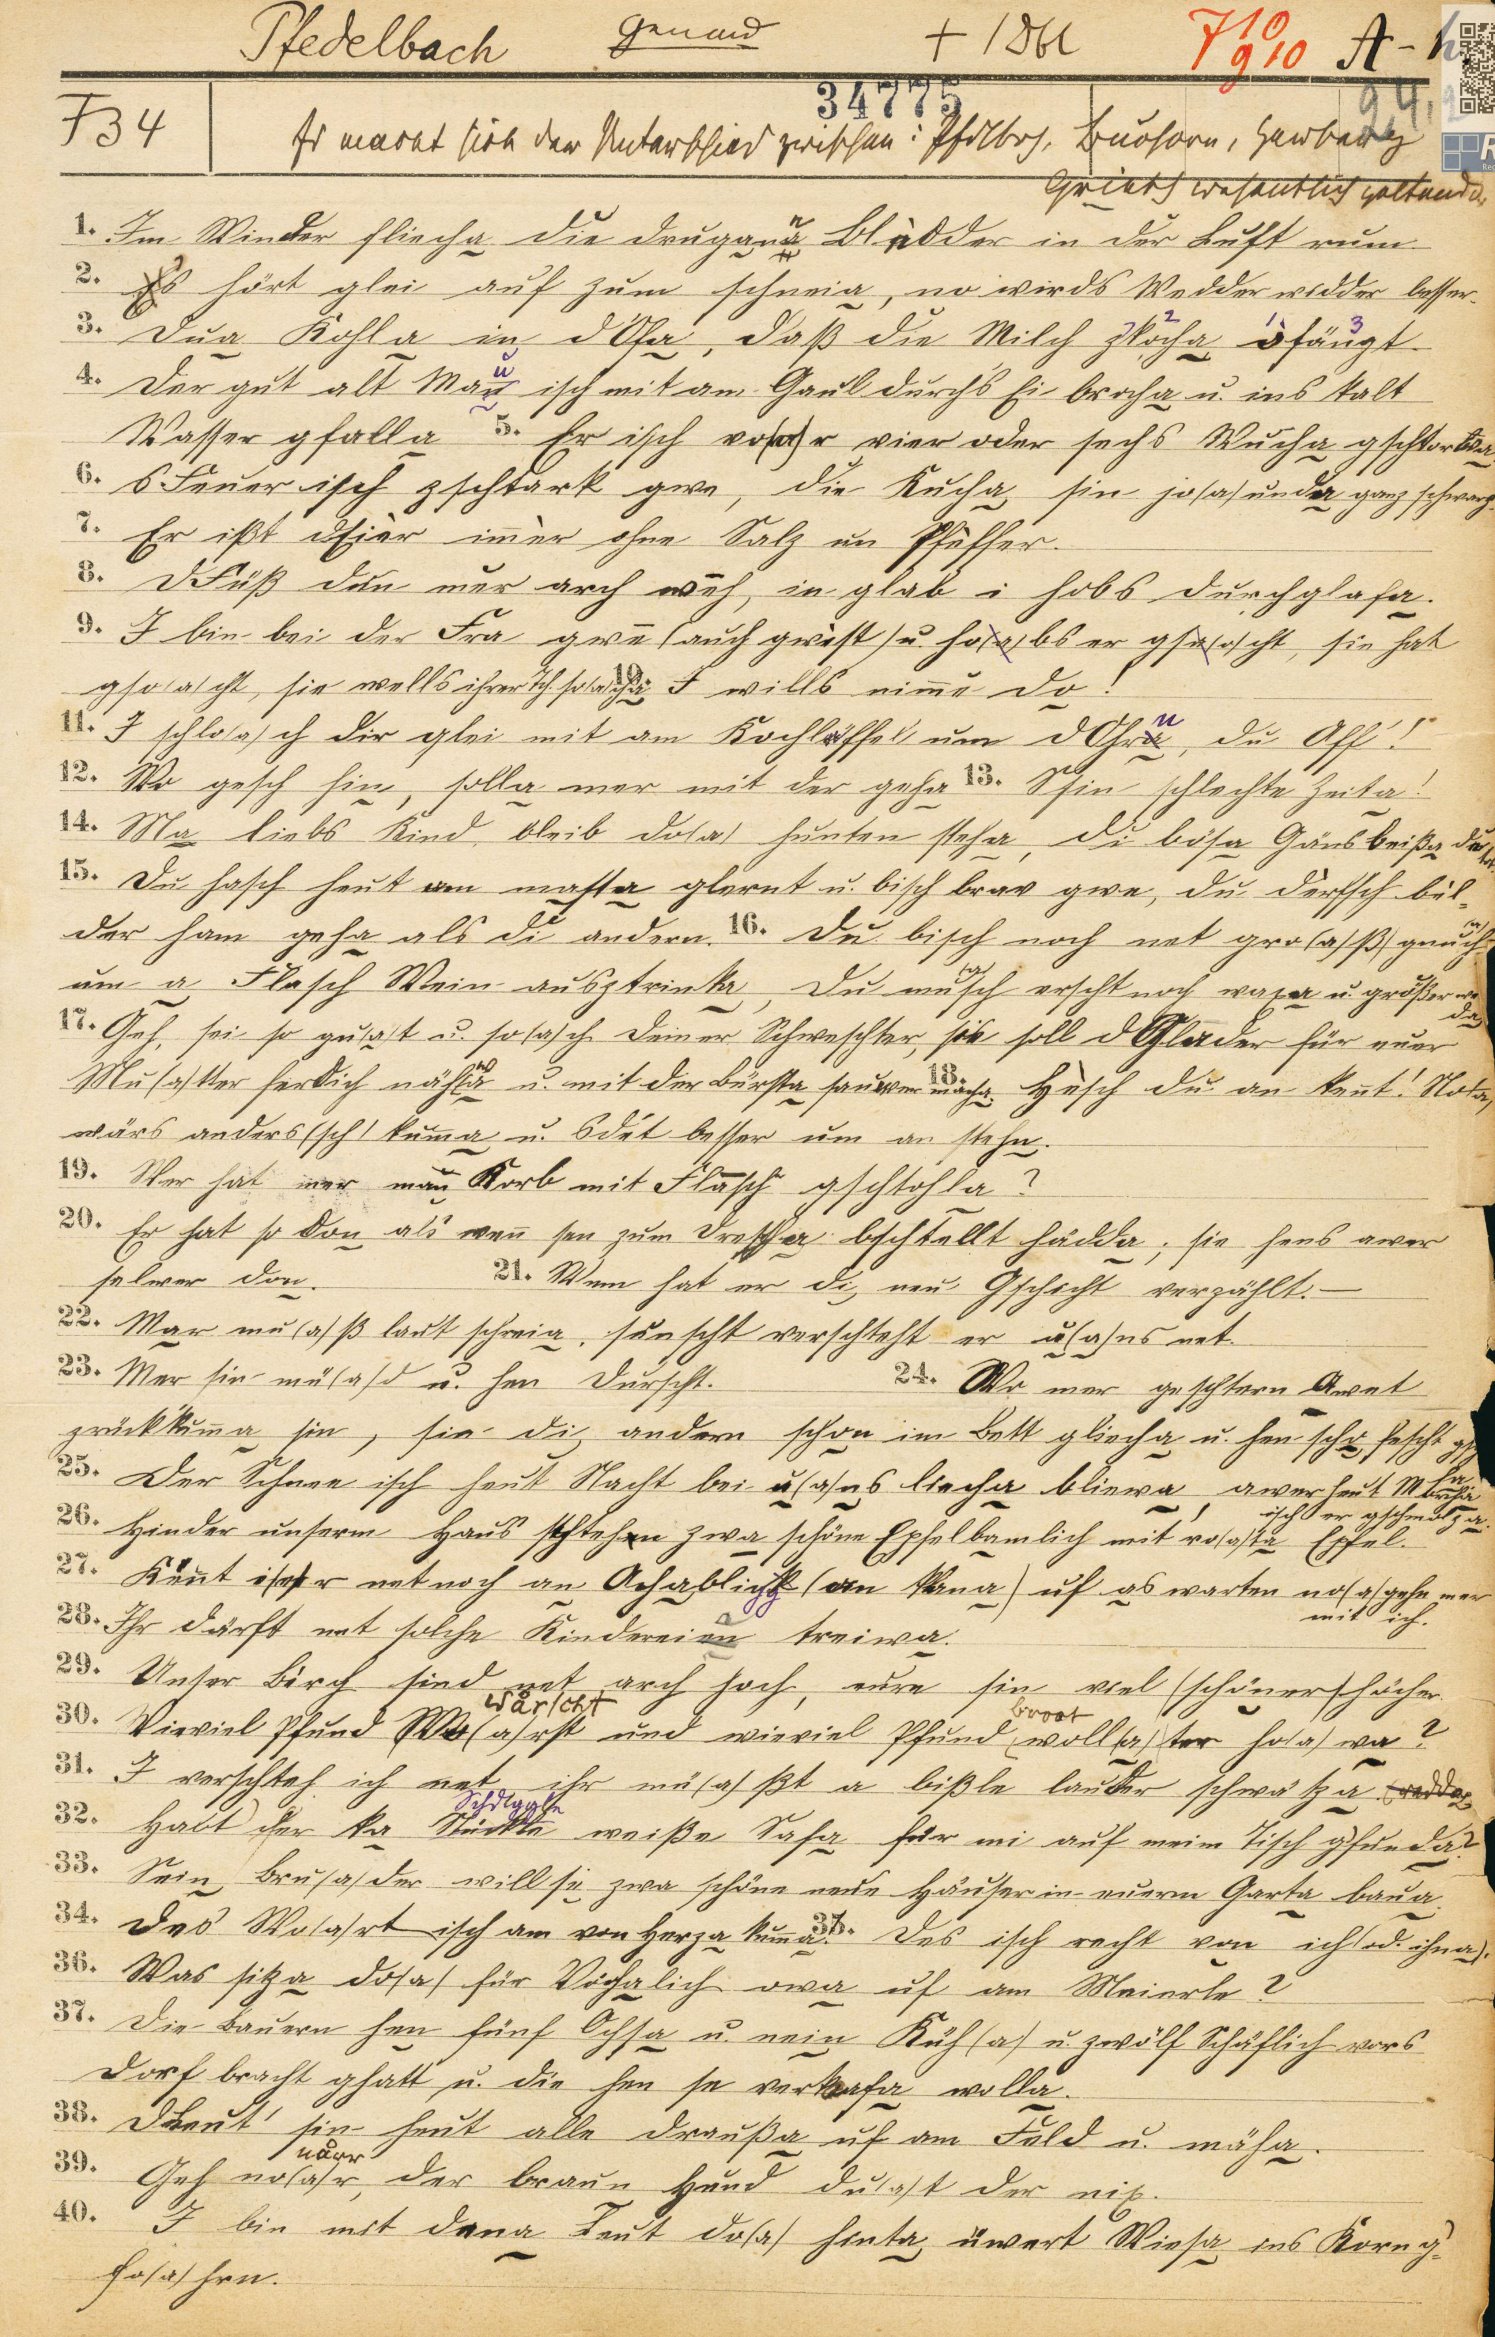 Pfedelbach genand + 1 Dbl 7 10 9 10 A-h
34775
F34 Es macht sich der Unterschied zwischen: Pfdlbch,
wesentlich geltend.
1. Im Winder fliecha die drugana Blädder in der Luft rum
2. Es hört glei auf zum schneia, no wirds Wedder widder besser.
3. Dua Kohla in d'Ofa, daß die Milch zkocha ofängt.
4. Der gut alt Mann isch mit am Gaul durch's Ei brocha u. ins kalt
Wasser gfalla 5. Er isch vo(a)r vier oder sechs Wucha gschtorwa
6. s Feuer isch zschtark gwe, die Kucha sin jo(a) unda ganz schwarz.
7. Er ißt d'Eier immer ohne Salz un Pfeffer.
8. D'Füß dun mer arch weh, in glab i hobs durchglafa.
9. I bin bei der Fra gwe (auch gwest) u. ho(a)bs er gsa(o)cht, sie hat
gso(a)cht, sie wells ihrer Tch so(a)cha 10. I wills nimme do!
11. I schlo(a)ch dir glei mit am Kochlöffel um d'Ohra, du Aff!
12. Wo gesch hin, solla mer mit der geha 13. S'sin schlechte Zeita!
14. Ma liebs Kind, bleib do(a) hunten steha, di bösa Gäns beißa di
15. Du hasch heut am masta glernt u. bisch brav gwe, du dersch bäl-
der ham geha als di andern. 16. Du bisch noch net gro(a)ß gnuch
um a Flasch Wein ausztrinka, Du musch erscht noch waxa u. größer
17. Geh, sei so gu(a)t u. so(a)ch deiner Schweschter, sie soll d Glader für euer
Mu(a)tter ferdich nähla u. mit der Bürsta sauwer macha. 18. Hesch du an kennt! No(a)
wärs anders(sch) kumma u. s dét besser um an stehn.
19. Wer hat mer man Korb mit Flasch gschtohla?
20. Er hat so don als wenn sen zum drescha bschtellt hädda; sie hens awer
selwer don. 21. Wem hat er di neu Gschicht verzählt.—
22. Mar mu(a)ß laut schreia, sunscht verschteht er u(a)ns net.
23. Mer sin mü(a)d u. hen Durscht. 24. Wo mer geschtern Awet
zrückkumma sin, sin di andern schon im Bett gliecha u. hen scho fescht
25. Der Schnee isch heut Nacht bei u(a)ns liecha bliewa, awer heut
isch er gschmolza.
26. Hinder unserm Haus schtehen zwa schöne Epfelbamlich mit ro(a)ta Epfel.
27. Könnt i(e)hr net noch an Achablick (an kana) uf as warten no(a) gehn mer
mit ich.
28. Ihr därft net solche Kindereien treiwa.
29. Unser Berch sind net arch hoch, eure sin viel (schöner) höcher.
wårscht broot
30. Wieviel Pfund Wo(a)rst und wieviel Pfund woll(a)ter ho(a)wa?
31. I verschteh ich net, ihr mü(a)ßt a bißle lauder schwätza
32. Habt ihr ka Stückle weiße Safa für mi auf meim Tisch gfunda?
33. Sein Bru(a)der will si zwa schöne neue Häuser in euerm Garta baua.
34. Des Wo(a)rt isch am von Herza kumma. 35. Des isch recht von ich (od. ihna).
36. Was sitza do(a) für Vöchalich owa uf am Meierle?
37. Die Bauern hen fünf Ochsa u. nein Küh(a) u. zwölf Schäflich vors
Dorf bracht ghatt u. die hen se verkafa wolla.
38. D'Leut' sin heut alle draußa uf am Feld u. mäha.
noar
39. Geh no(a)r, der braun Hund du(a)t der nix.
40. I bin mit dena Leut do(a) hinta üwert Wiesa ins Korn g'-
fo(a)hrn.